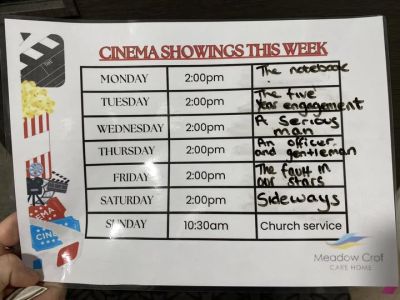 CINEMA SHOWINGS THIS WEEK
MONDAY 2:00pm The notebook
TUESDAY 2:00pm The five Year engagement
WEDNESDAY 2:00pm A Serious man
THURSDAY 2:00pm An officer and gentleman
FRIDAY 2:00pm The fault in our stars
SATURDAY 2:00pm Sideways
SUNDAY 10:30am Church service
Meadow Crof
CARE HOME
CINE